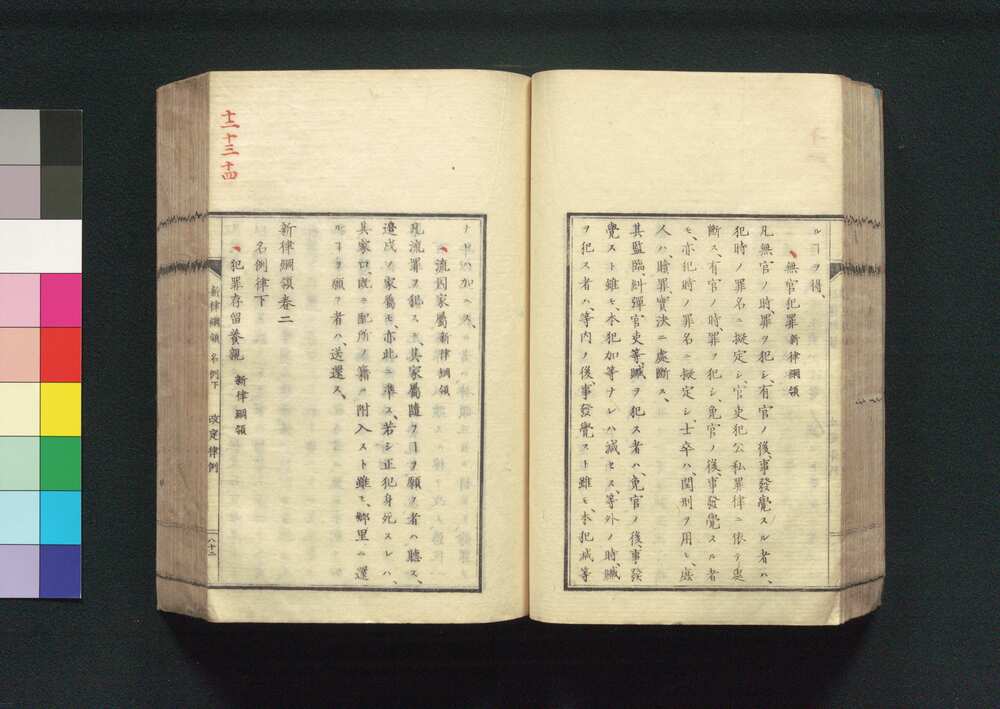 ルヿヲ得、
無官犯罪 新律綱領
凡無官ノ時、罪ヲ犯シ、有官ノ後、事發覺スル者ハ、
犯時ノ罪名ニ擬定シ、官吏犯公私罪律ニ依テ處
断ス、有官ノ時、罪ヲ犯シ、免官ノ後、事發覺スル者
モ、亦犯時ノ罪名ニ擬定シ、士卒ハ、閏刑ヲ用ヒ、庶
人ハ、贖罪實決ニ處断ス、
其監臨、糾彈官吏等、贓ヲ犯ス者ハ、免官ノ後、事發
覺スト雖モ、本犯加等ナレハ減セス、等外ノ時、贓
ヲ犯ス者ハ、等内ノ後、事發覺スト雖モ、本犯減等
ナレハ加ヘス、
流囚家屬 新律綱領
凡流罪ヲ犯スニ、其家屬隨フヿヲ願フ者ハ聽ス、
邉戍ノ家屬モ、亦此ニ準ス、若シ正犯身死スレハ、
其家口、既ニ配所ノ籍ニ附入スト雖モ、郷里ニ還
ルヿヲ願フ者ハ、送還ス、
新律綱領巻二
名例律下
犯罪存留養親 新律綱領
新律綱領 名例下 改定律例
八十二
十二 十三 十四